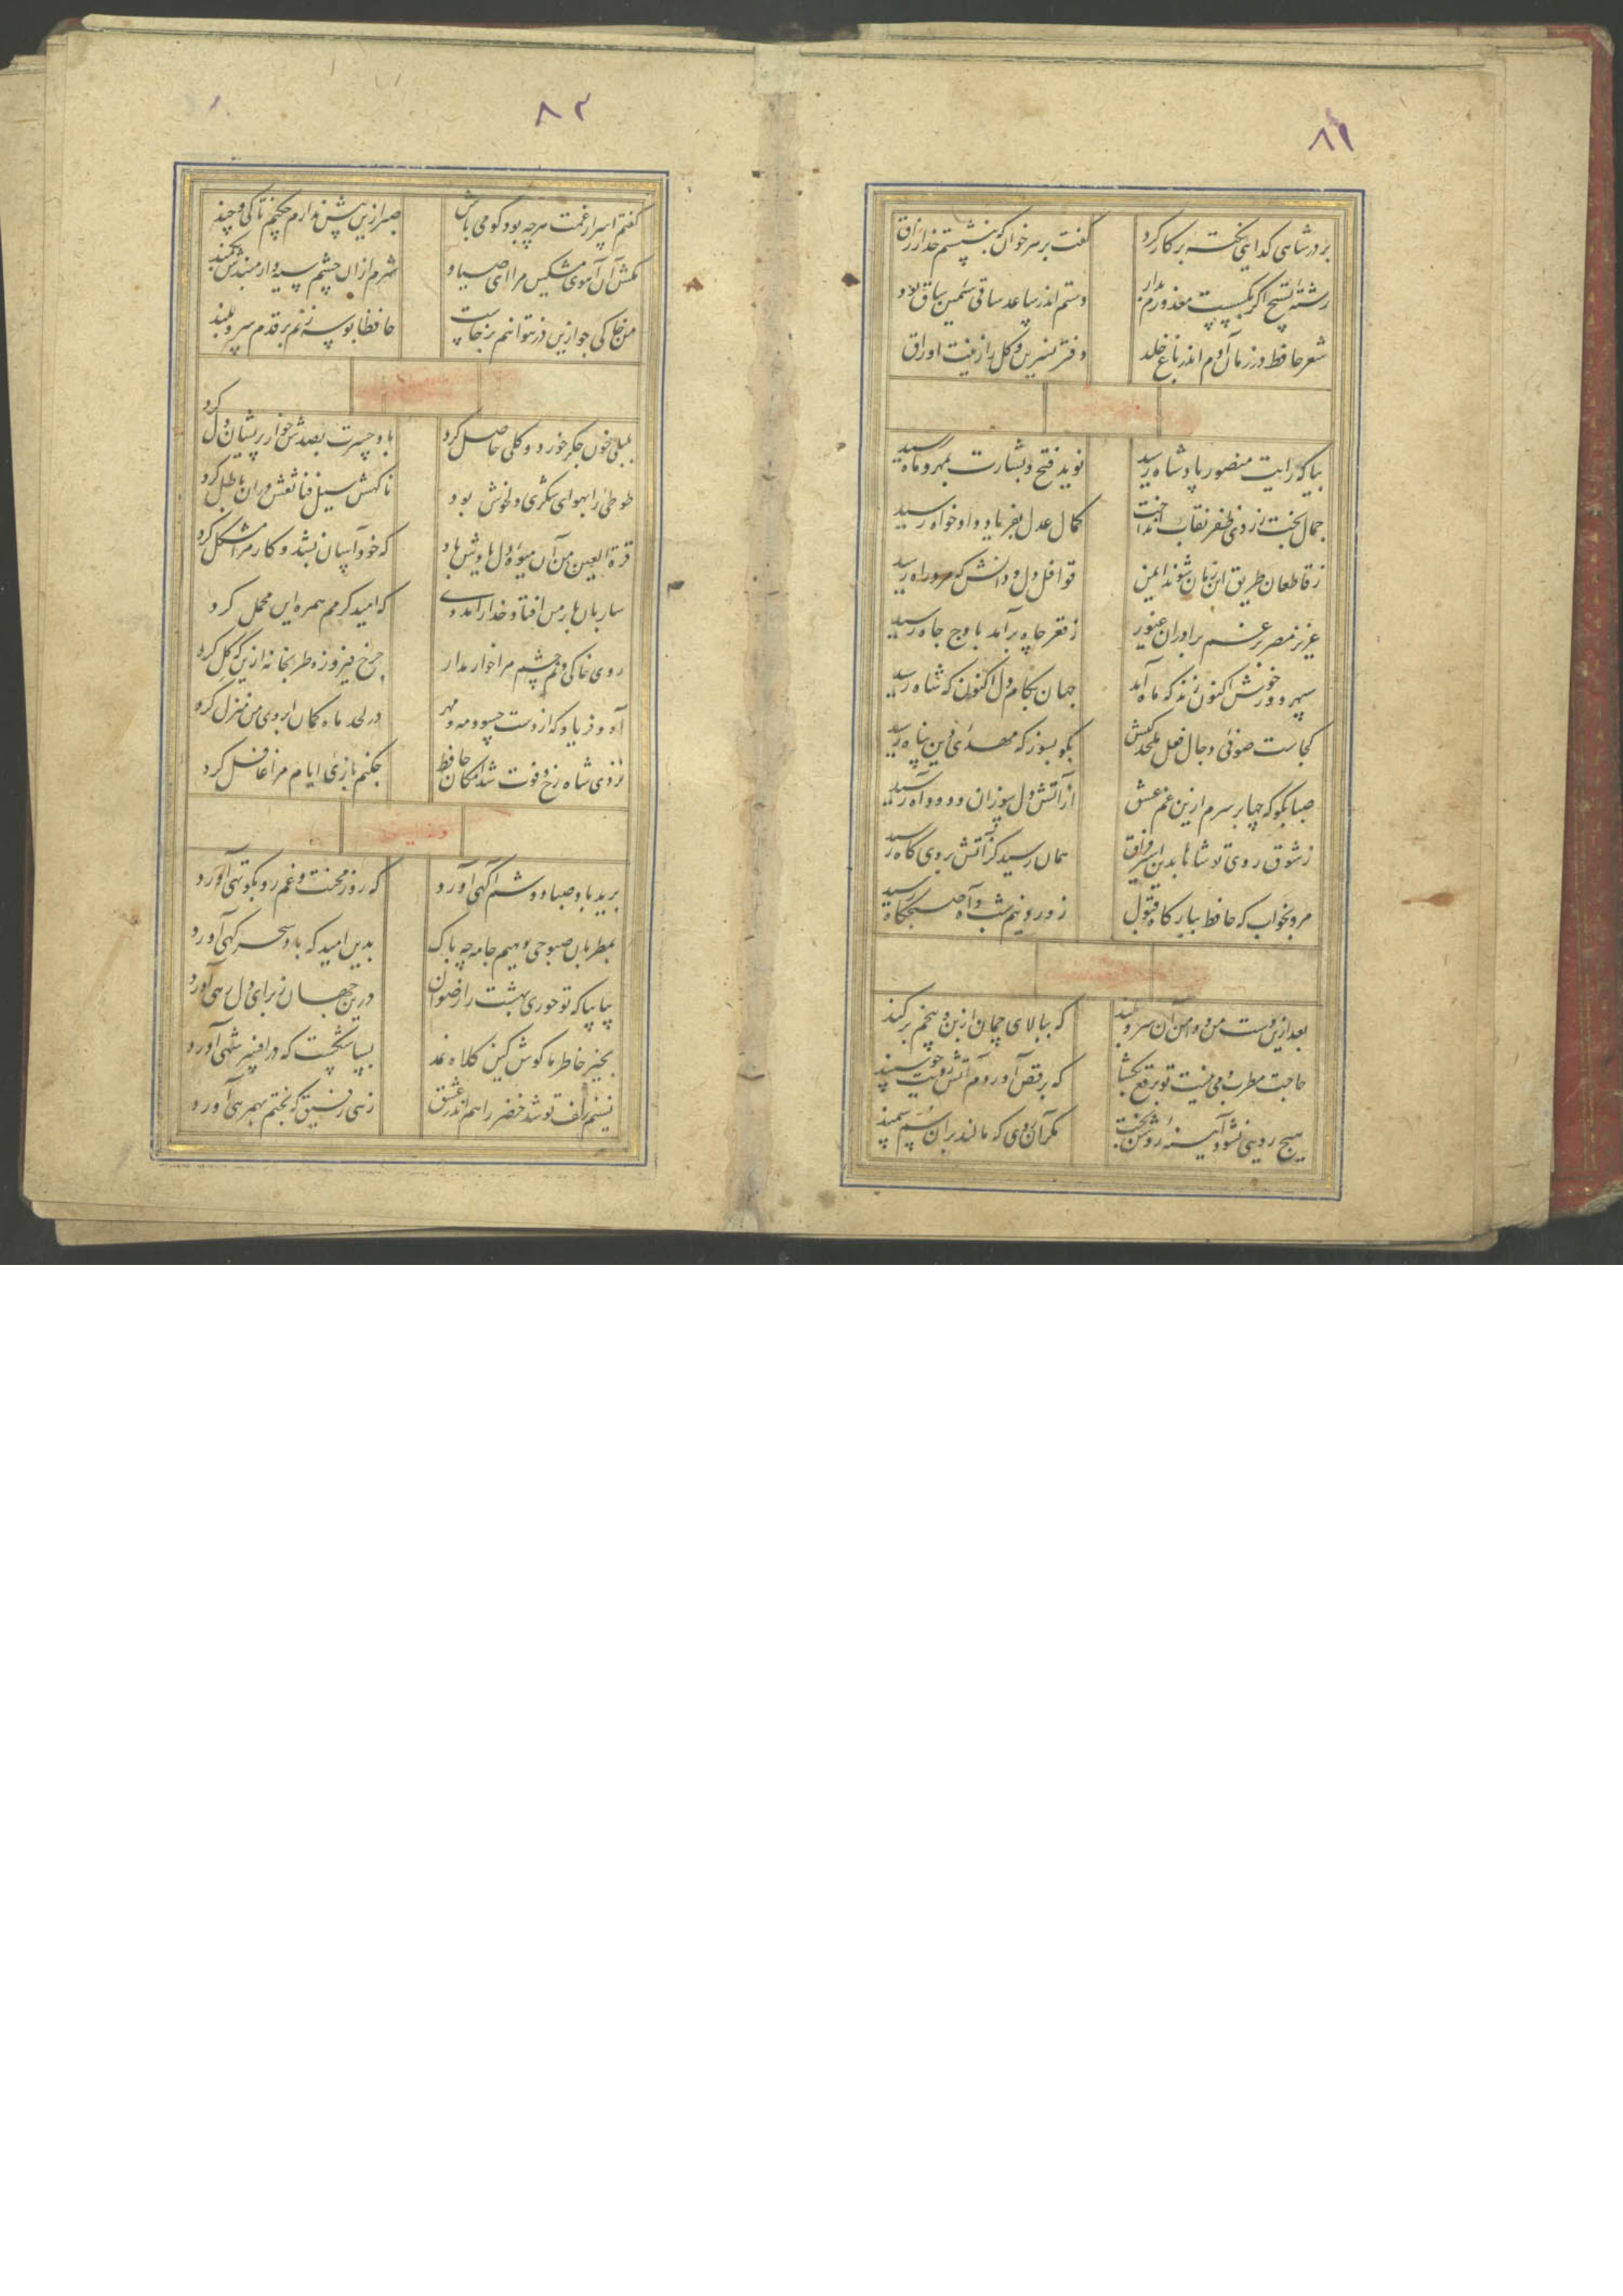 ۸۱
بر در شاهی گدایی نکته بر کار کرد
گفت بر سر خوان که بنشستم خدا رزاق
رشته تسبیح اگر بگسست معذورم بدار
دستم اندر ساعد ساقی سیمین ساق بود
شعر حافظ در زمان آدم اندر باغ خلد
دفتر نسرین و گل را زینت اوراق
بیا که رایت منصور پادشاه رسید
نوید فتح و بشارت بمهر و ماه رسید
جمال بخت ز روی ظفر نقاب انداخت
کمال عدل بفریاد دادخواه رسید
ز قاطعان طریق این زمان شوند ایمن
قوافل دل و دانش که مرد راه رسید
عزیز مصر برغم برادران غیور
ز قعر چاه برآمد باوج جاه رسید
سپهر دور خوش اکنون زند که ماه آمد
جهان بکام دل اکنون که شاه رسید
کجاست صوفی دجال فعل ملحد کیش
بگو بسوز که مهدی دین پناه رسید
صبا بگو که چها بر سرم ازین غم عشق
از آتش دل سوزان و دود آه رسید
ز شوق روی تو شاها بدین اسیر فراق
همان رسید کز آتش بروی کاه رسید
مرو بخواب که حافظ ببارگاه قبول
ز ورد نیم شب و آه صبحگاه رسید
بعد ازین دست من و دامن آن سرو بلند
که ببالای چمان از بن و بیخم برکند
حاجت مطرب و می نیست تو برقع بگشا
که برقص آوردم آتش رویت چو سپند
هیچ رویی نشود آینه روشن بخت
مگر آن روی که مالند بران سم سمند
۸۲
گفتم اسرار غمت هر چه بود گو می باش
صبر ازین بیش ندارم چکنم تا کی و چند
مکش آن آهوی مشکین مرا ای صیاد
شرم ازان چشم سیه دار مبندش بکمند
من خاکی چو ازین در نتوانم برخاست
حافظا بوسه زنم بر قدم سرو بلند
بلبلی خون جگر خورد و گلی حاصل کرد
باد حسرت بصدش خوار پریشان دل کرد
طوطی را بهوای شکری دلخوش بود
ناگهش سیل فنا نقش ران باطل کرد
قرة العین من آن میوه دل یادش باد
که خود آسان بشد و کار مرا مشکل کرد
ساربان بار من افتاد خدا را مددی
که امید کرمم همره این محمل کرد
روی خاکی و نم چشم مرا خوار مدار
چرخ فیروزه طربخانه ازین کهگل کرد
آه و فریاد که از دست حسود مه و مهر
در لحد ماه کمان ابروی من منزل کرد
نزدی شاه رخ و فوت شد امکان حافظ
چکنم بازی ایام مرا غافل کرد
برید باد صبا دوشم آگهی آورد
که روز محنت و غم رو بکوتهی آورد
بمطربان صبوحی دهیم جامه چاک
بدین امید که باد سحرگهی آورد
بیا بیا که تو حوری بهشت را رضوان
درین جهان ز برای دل رهی آورد
بخیر خاطر ما کوش کین کلاه نمد
بسا شکست که در افسر شهی آورد
نسیم زلف تو شد خضر راهم اندر عشق
زهی رفیق که بختم بهمرهی آورد